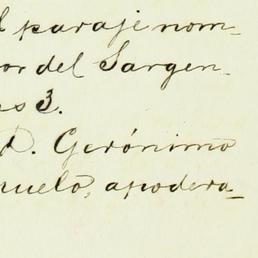 l paraje nom-
or del Sargen-
os 3.
D. Gerónimo
ruelo, apodera-